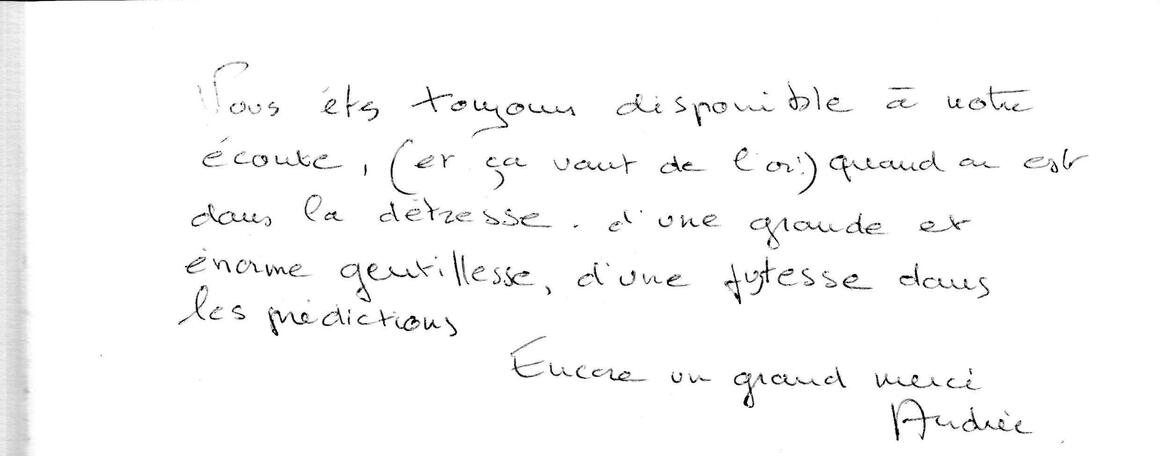 Vous êts toujours disponible à notre
écoute, (et ça vaut de l'or!) quand on est
dans la détresse. d'une grande et
énorme gentillesse, d'une justesse dans
les prédictions
Encore un grand merci
Andrée